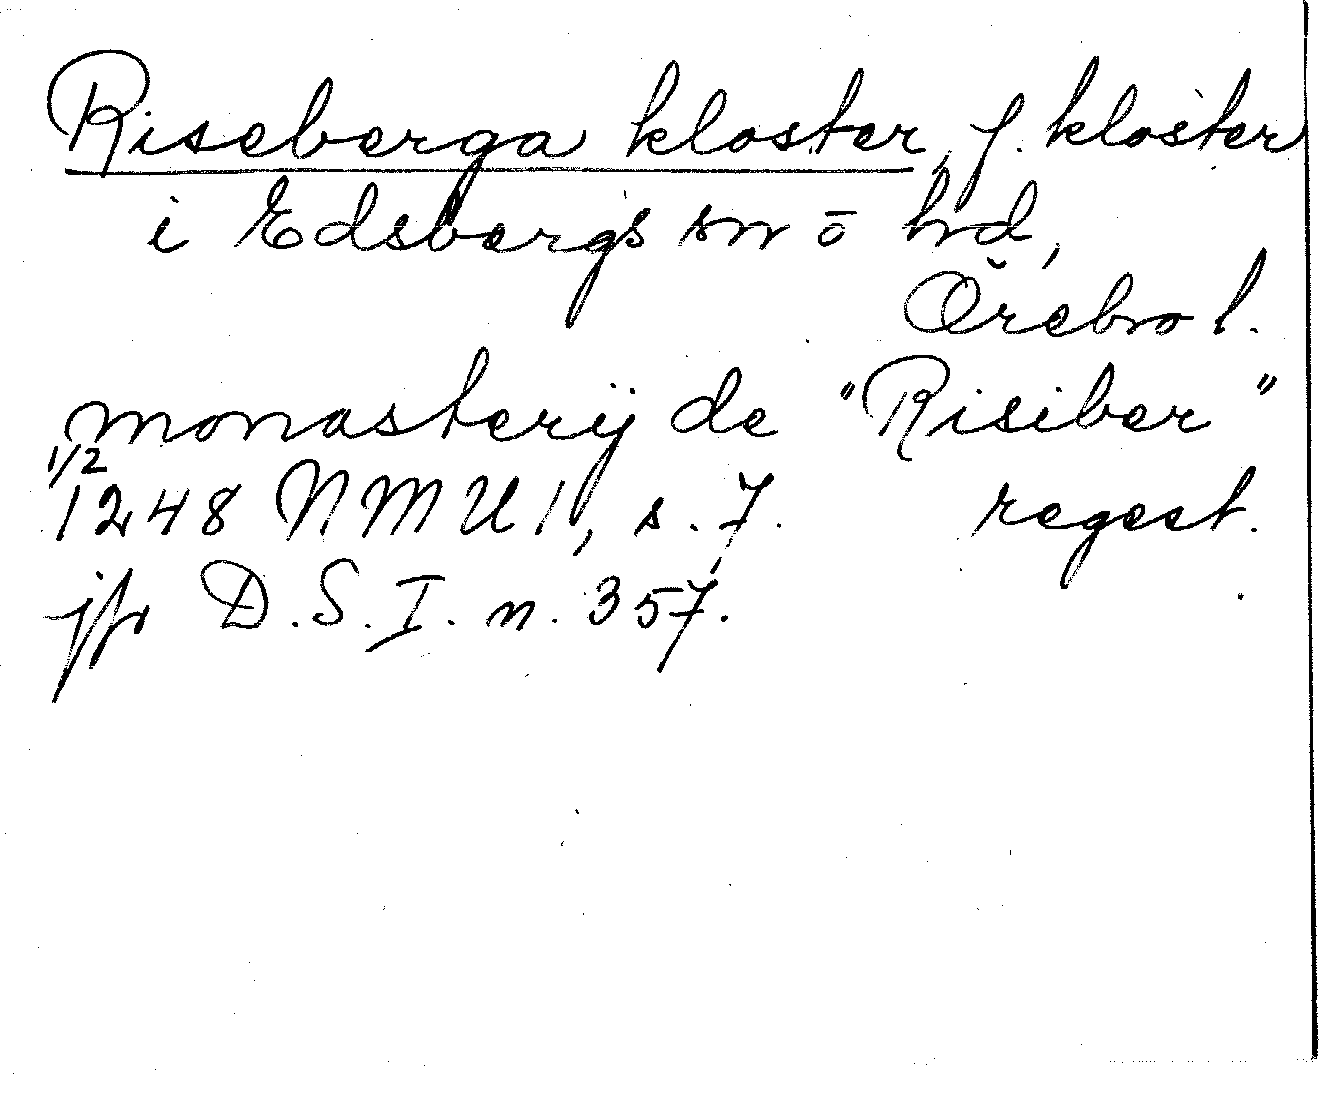 Riseberga kloster, f. kloster
i Edsbergs sn ō hd,
Örebro l.
monasterij de "Risiber"
1/2
1248 NMU 1, s. 7. regest.
jfr D.S. I. n. 357.